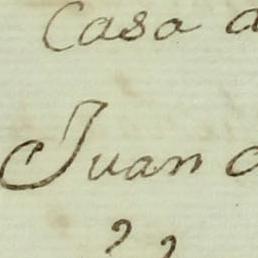 Casa d
Juan d